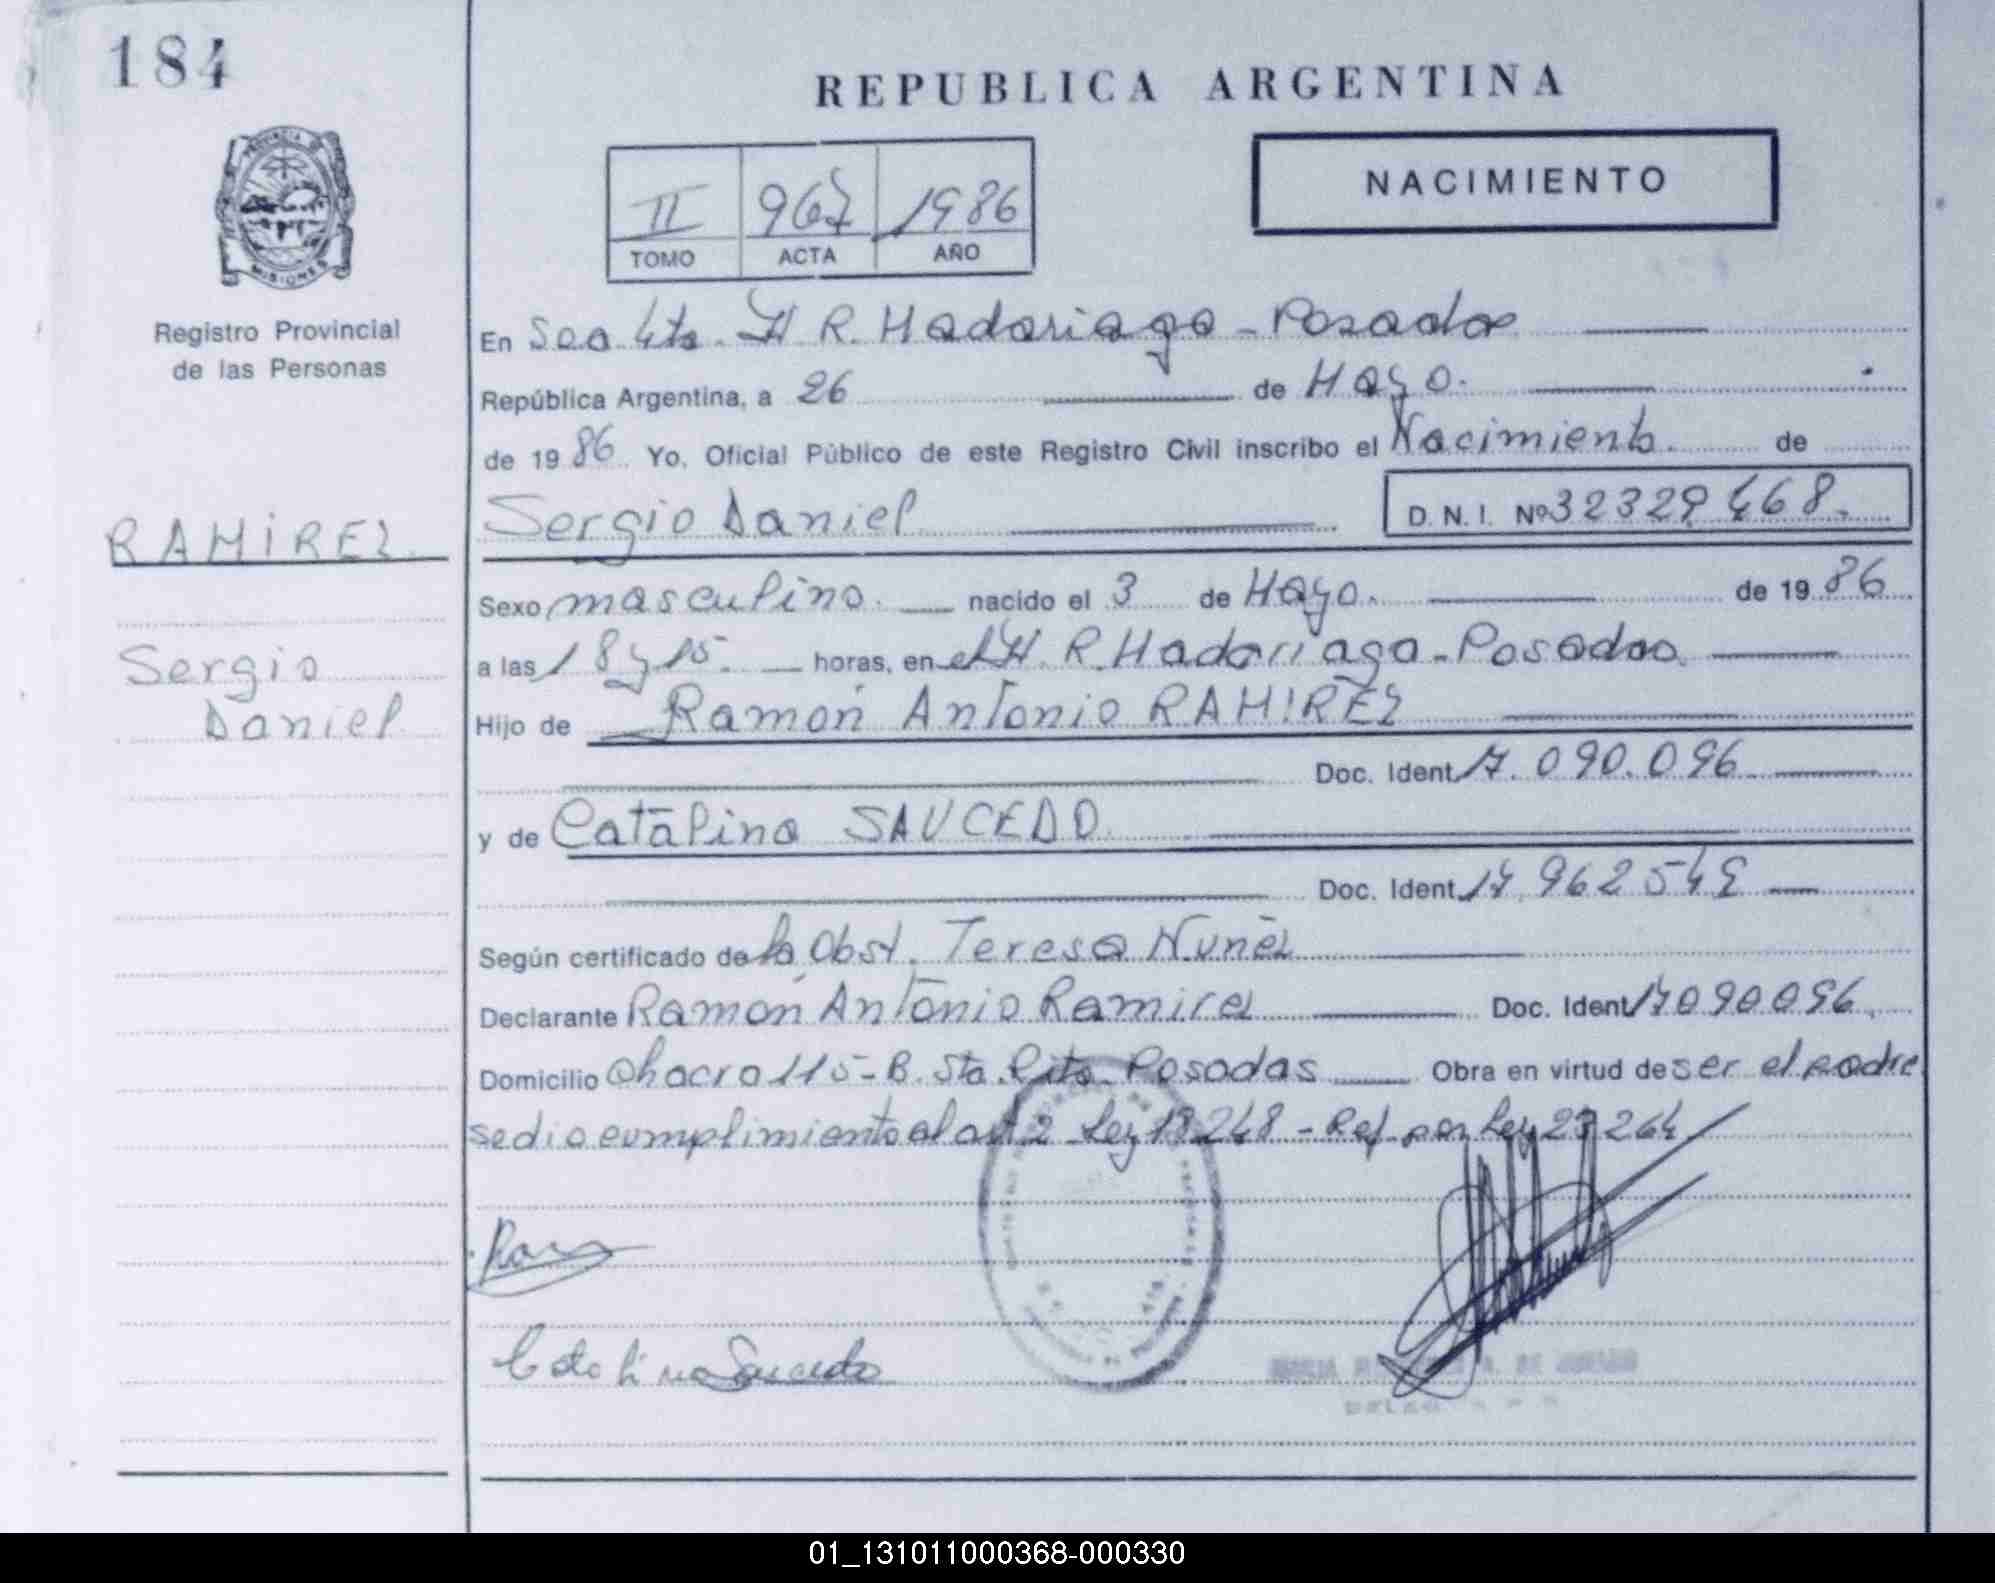 184
REPUBLICA ARGENTINA
PROVINCIA DE
MISIONES
Registro Provincial
de las Personas
II 967 1986
TOMO ACTA AÑO
NACIMIENTO
En Secc 4ta. H R. Madariaga - Posadas
República Argentina, a 26 de Mayo.
de 1986 Yo, Oficial Público de este Registro Civil inscribo el Nacimiento. de
RAMIREZ
Sergio Daniel D. N. I. Nº 32329468.
Sexo masculino. nacido el 3 de Mayo. de 1986
Sergio
Daniel
a las 18 y 15. horas, en el H. R. Madariaga - Posadas.
Hijo de Ramón Antonio RAMIREZ
Doc. Ident. 17.090.096
y de Catalina SAUCEDO.
Doc. Ident. 17.962549
Según certificado de la Obst. Teresa Nuñez
Declarante Ramón Antonio Ramirez Doc. Ident. 17090096.
Domicilio Chacra 115 - B. Sta. Rita - Posadas Obra en virtud de ser el padre
se dio cumplimiento al art 2 Ley 18248 - Ref. por Ley 23264
Catalina Saucedo
01_131011000368-000330